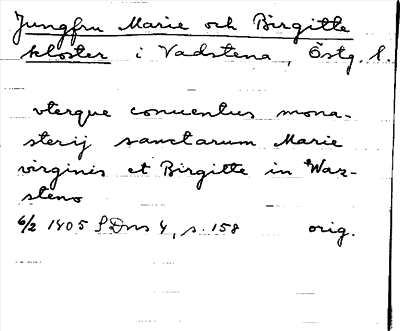 Jungfru Marie och Birgitte
kloster i Vadstena, Östg. l.
vterque conuentus mona-
sterij sanctarum Marie
virginis et Birgitte in Waz-
steno
6/2 1405 SDns 4, s. 158 orig.